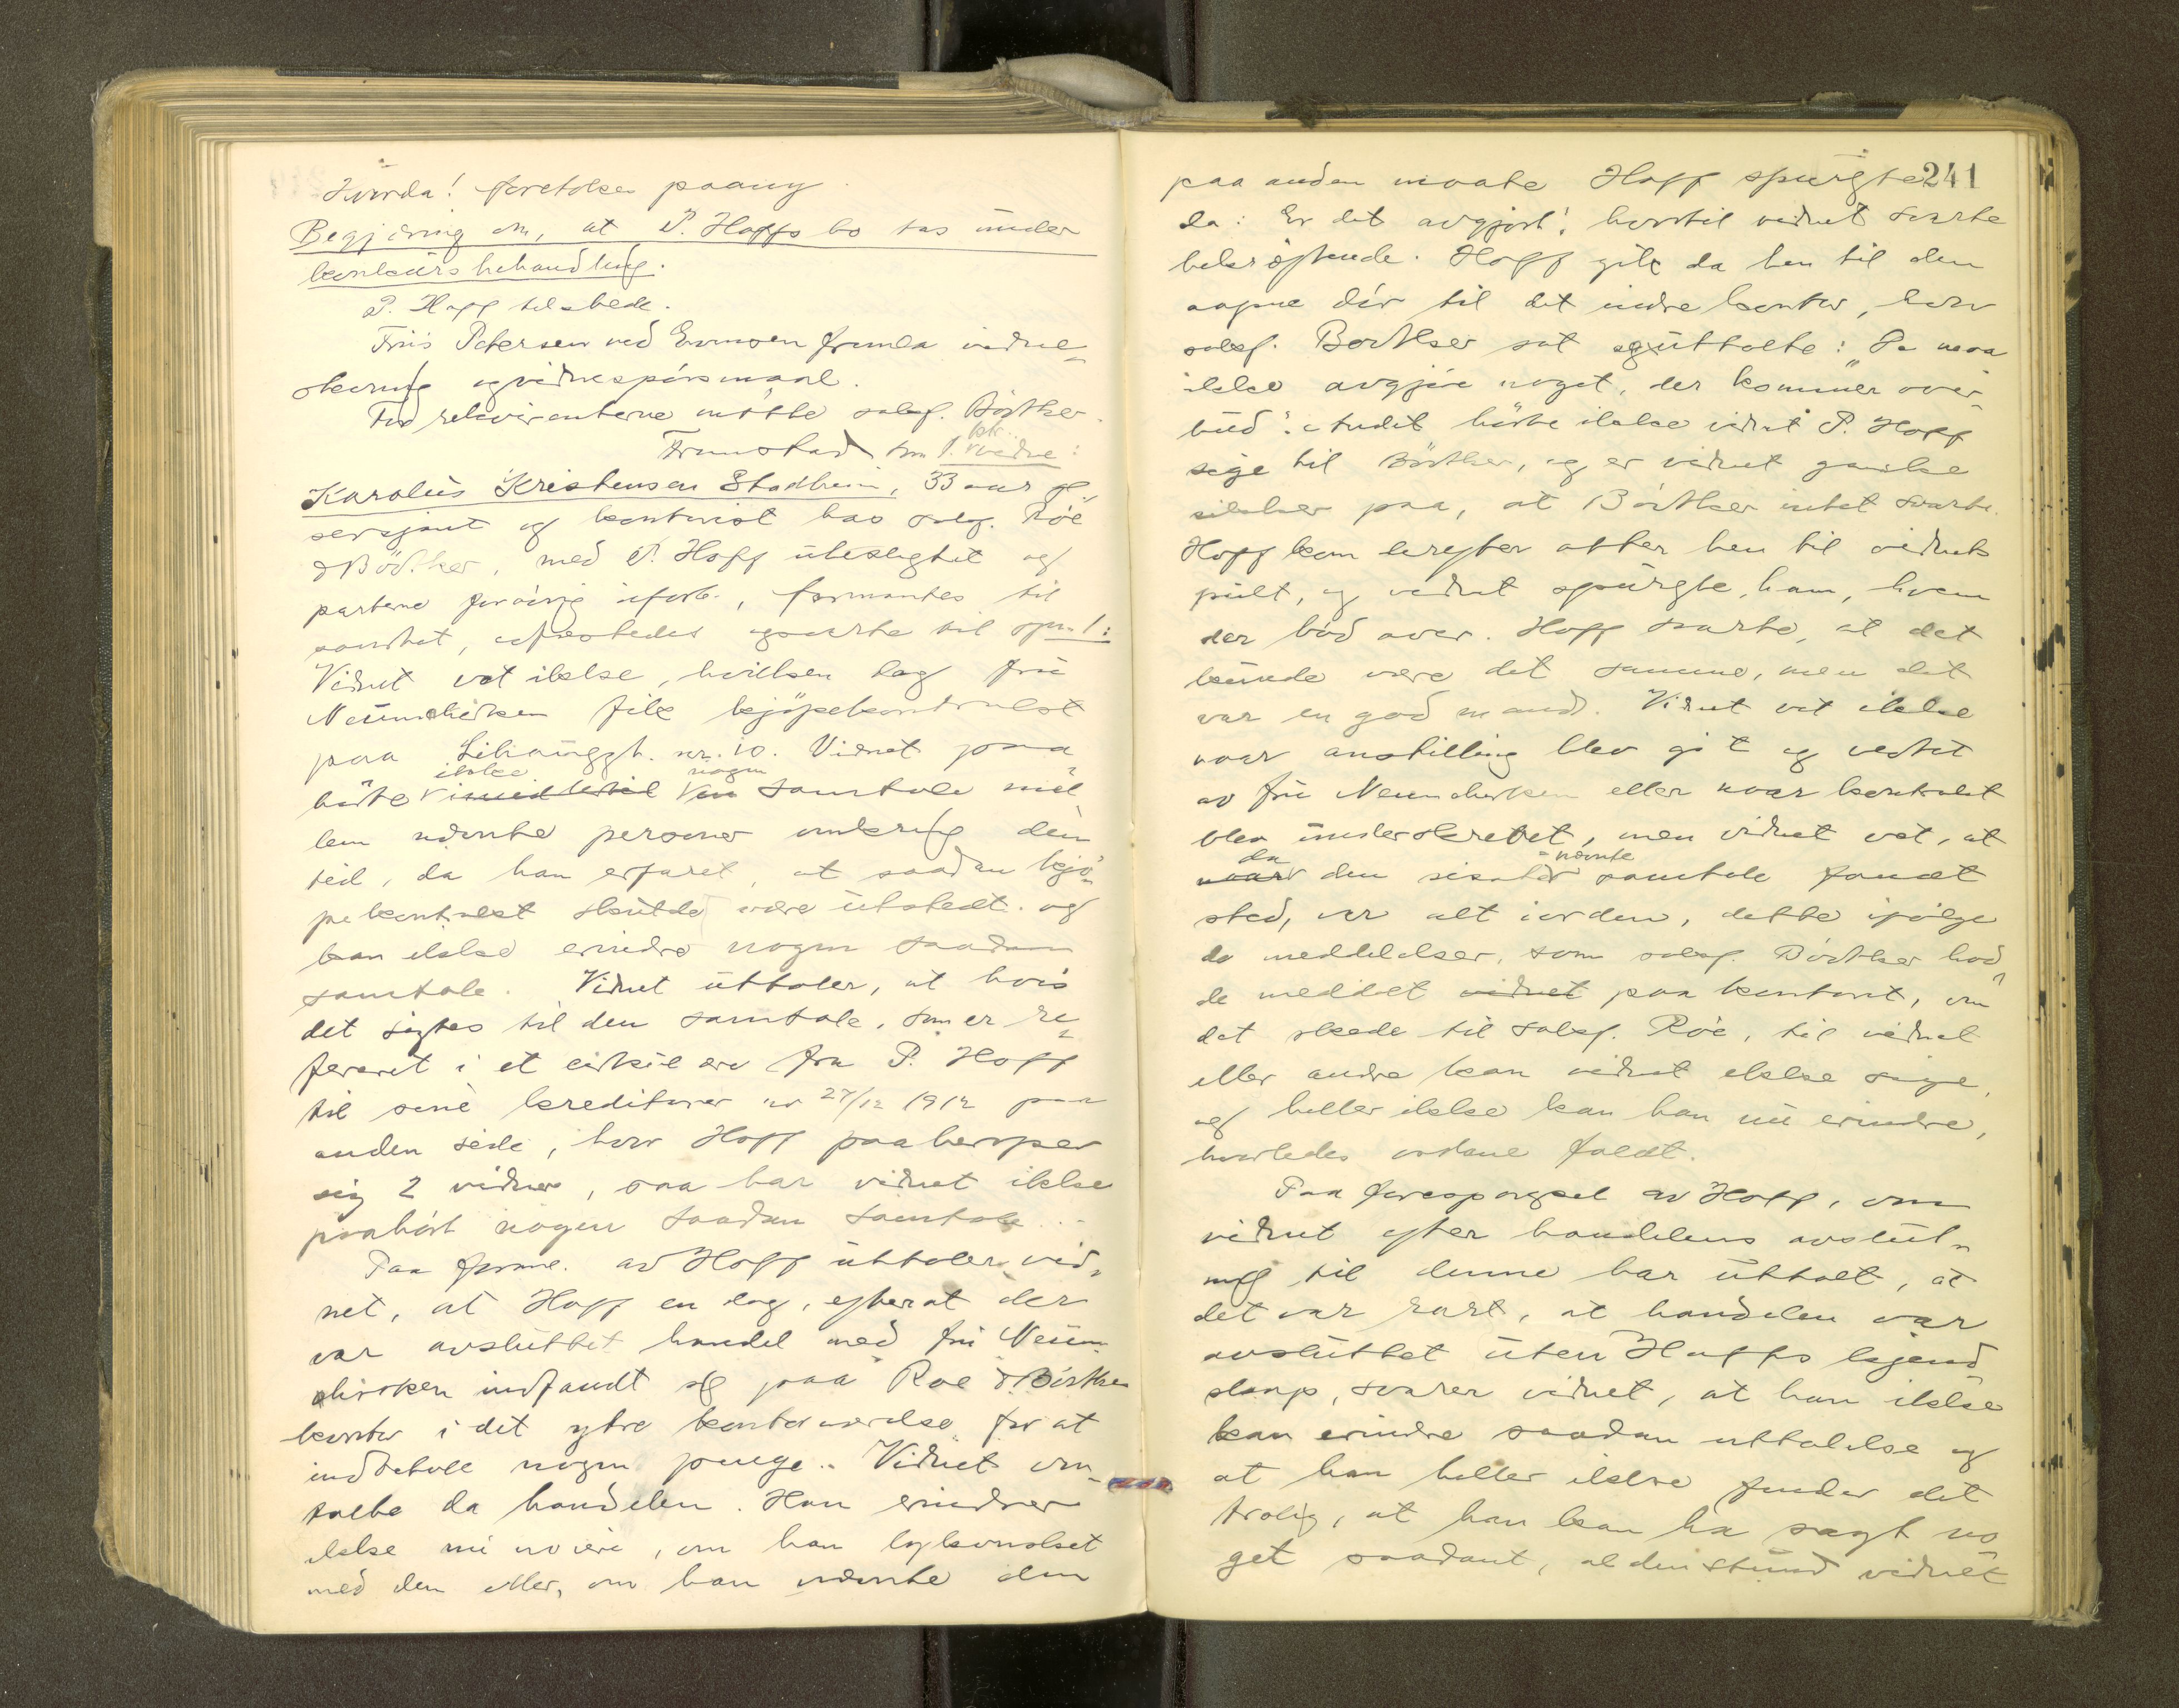 Hvorda! foretokes paany.
Begjæring om, at P. Hoffs bo tas under
konkursbehandling.
P. Hoff tilstede.
Friis Petersen ved Evensen fremla vidne-
stevning og vidnespørsmaal.
For rekvirenterne møtte saksf. Bödtker.
Fremstod som 1. rekv. vidne:
Karolus Kristensen Stadheim, 33 aar gl.
sersjant og kontorist hos saksf. Röe
& Bödtker, med P. Hoff ubeslegtet og
parterne forövrig uforb., formantes til
sandhet, edfæstedes og svarte til spm 1:
Vidnet vet ikke, hvilken dag fru
Neumcherken fik kjöpekontrakt
paa Lilhauggt. nr. 10. Vidnet paa-
hørte ikke imidlertid nogen en samtale mel-
lem nævnte personer omkring den
tid, da han erfaret, at saadan kjö-
pekontrakt skulde være utstedt. og
kan ikke erindre nogen saadan
samtale. Vidnet uttaler, at hvis
det sigtes til den samtale, som er re-
fereret i et cirkulære fra P. Hoff
til sine kreditorer av 27/12 1912 paa
anden side, hvor Hoff paaberoper
sig 2 vidner, saa har vidnet ikke
paahört nogen saadan samtale.
Paa foranl. av Hoff uttaler vid-
net, at Hoff en dag, efterat der
var avsluttet handel med fru Neum-
chirken indfandt sig paa Roe & Bödtkers
kontor i det ytre kontorværelse for at
indbetale nogen penge. Vidnet om-
talte da handelen. Han erindrer
ikke nu nöiere, om han lykönsket
med den eller, om han nævnte den
241
paa anden maate Hoff spurgte
da: Er det avgjort! hvortil vidnet svarte
bekræftende. Hoff gik da hen til den
aapne dör til det indre kontor, hvor
saksf. Bödtker sat og uttalte: "De maa
ikke avgjöre noget, der kommer over-
bud". Andet hörte ikke vidnet P. Hoff
sige til Bödtker, og er vidnet ganske
sikker paa, at Bödtker intet svarte.
Hoff kom derefter atter hen til vidnets
pult, og vidnet spurgte ham, hvem
der böd over. Hoff svarte, at det
kunde være det samme, men det
var en god mand. Vidnet vet ikke
naar anstilling blev git og vedtat
av fru Neumcherken eller naar kontrakt
blev underskrevet, men vidnet vet, at
naar da den sisst-nævnte samtale fandt
sted, var alt iorden, dette ifölge
de meddelelser, som saksf. Bödtker had-
de meddelt vidnet paa kontoret, om
det skede til saksf. Röe, til vidnet
eller andre kan vidnet ikke sige,
og heller ikke kan han nu erindre,
hvorledes ordene faldt.
Paa forespørgsel av Hoff, om
vidnet efter handelens avslut-
ning til denne har uttalt, at
det var rart, at handelen var
avsluttet uten Hoffs kjend-
skap, svarer vidnet, at han ikke
kan erindre saadan uttalelse og
at han heller ikke finder det
trolig, at han kan ha sagt no
get saadant, aldenstund vidnet